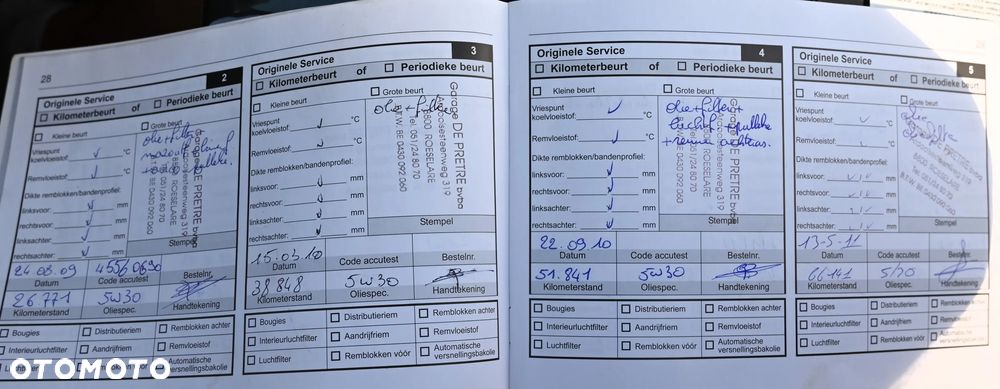 28
Originele Service
2
Kilometerbeurt of Periodieke beurt
Kleine beurt
Grote beurt
olie + filter
mazout
Vriespunt
koelvloeistof: °C
Remvloeistof: °C
Dikte remblokken/bandenprofiel:
linksvoor: mm
rechtsvoor: mm
linksachter: mm
rechtsachter: mm
ROESELARE
051/24 80 70
BE 0430 092 060
Stempel
24 03 09
Datum
Code accutest
Bestelnr.
26 771
5w30
Kilometerstand
Oliespec.
Handtekening
Bougies
Distributieriem
Remblokken achter
Interieurluchtfilter
Aandrijfriem
Remvloeistof
Luchtfilter
Remblokken vóór
Automatische
versnellingsbakolie
Originele Service
3
Kilometerbeurt of Periodieke beurt
Kleine beurt
Grote beurt
olie + filter
Vriespunt
koelvloeistof: °C
Remvloeistof: °C
Dikte remblokken/bandenprofiel:
linksvoor: mm
rechtsvoor: mm
linksachter: mm
rechtsachter: mm
Garage DE PRETRE bvba
Ardooisesteenweg 319
8800 ROESELARE
Tel 051/24 80 70
B.T.W. BE 0430 092 060
Stempel
15.03.10
Datum
Code accutest
Bestelnr.
38 848
5w30
Kilometerstand
Oliespec.
Handtekening
Bougies
Distributieriem
Remblokken achter
Interieurluchtfilter
Aandrijfriem
Remvloeistof
Luchtfilter
Remblokken vóór
Automatische
versnellingsbakolie
Originele Service
4
Kilometerbeurt of Periodieke beurt
Kleine beurt
Grote beurt
olie + filter +
Vriespunt
koelvloeistof: °C
Remvloeistof: °C
Dikte remblokken/bandenprofiel:
linksvoor: mm
rechtsvoor: mm
linksachter: mm
rechtsachter: mm
Garage DE PRETRE bvba
Ardooisesteenweg 319
8800 ROESELARE
Tel 051/24 80 70
B.T.W. BE 0430 092 060
Stempel
22.09.10
Datum
Code accutest
Bestelnr.
51.841
5w30
Kilometerstand
Oliespec.
Handtekening
Bougies
Distributieriem
Remblokken achter
Interieurluchtfilter
Aandrijfriem
Remvloeistof
Luchtfilter
Remblokken vóór
Automatische
versnellingsbakolie
Originele Service
5
Kilometerbeurt of Periodieke beurt
Kleine beurt
Grote beurt
olie
Vriespunt
koelvloeistof: °C
Remvloeistof: °C
Dikte remblokken/bandenprofiel:
linksvoor: mm
rechtsvoor: mm
linksachter: mm
rechtsachter: mm
DE PRETRE
8800 ROESELARE
Tel 051/24 80 70
Stempel
13-5-11
Datum
Code accutest
Bestelnr.
66141
Kilometerstand
Oliespec.
Handtekening
Bougies
Distributieriem
Remblokken achter
Interieurluchtfilter
Aandrijfriem
Remvloeistof
Luchtfilter
Remblokken vóór
OTOMOTO